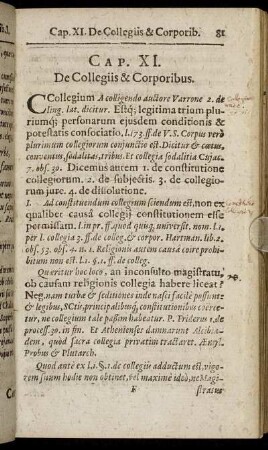 Cap. XI. De Collegiis & Corporib. 81
CAP. XI.
De Collegiis & Corporibus.
COllegium A colligendo auctore Varrone 2. de
ling. lat. dicitur. Estq; legitima trium plu-
riumq; personarum ejusdem conditionis &
potestatis consociatio, l. 173. ff. de V. S. Corpus verò
plurimum collegiorum conjunctio est. Dicitur & cœtus,
conventus, sodalitas, tribus. Et collegia sodalitia Cujac.
7. obs. 30. Dicemus autem 1. de constitutione
collegiorum. 2. de subjectis. 3. de collegio-
rum jure. 4. de dissolutione.
I. Ad constituendum collegium sciendum est, non ex
qualibet causâ collegij constitutionem esse
permissam. l. in pr. ff. quod cujusq; universit. nom. l. 1.
per l. collegia 3. ff. de colleg. & corpor. Hartman. lib. 2.
obs. 53. obs. 4. n. 1. Religionis autem causâ coire probi-
bitum non est. l. 1. §. 1. ff. de colleg.
Quæritur hoc loco, an inconsulto magistratu,
ob causam religionis collegia habere liceat?
Neg. nam turbæ & seditiones inde nasci facilè possunt:
& legibus, SCtis, principalibusq; constitutionibus coërce-
tur, ne collegium tale passim habeatur. P. Friderus 1. de
process. 30. in fin. Et Athenienses damnarunt Alcibia-
dem, quod sacra collegia privatim tractaret. Æmyl.
Probus & Plutarch.
Quod ante ex l. 1. §. 1. de collegiis adductum est, vigo-
rem suum hodie non obtinet, vel maximè ideò, ne Magi-
F stratus